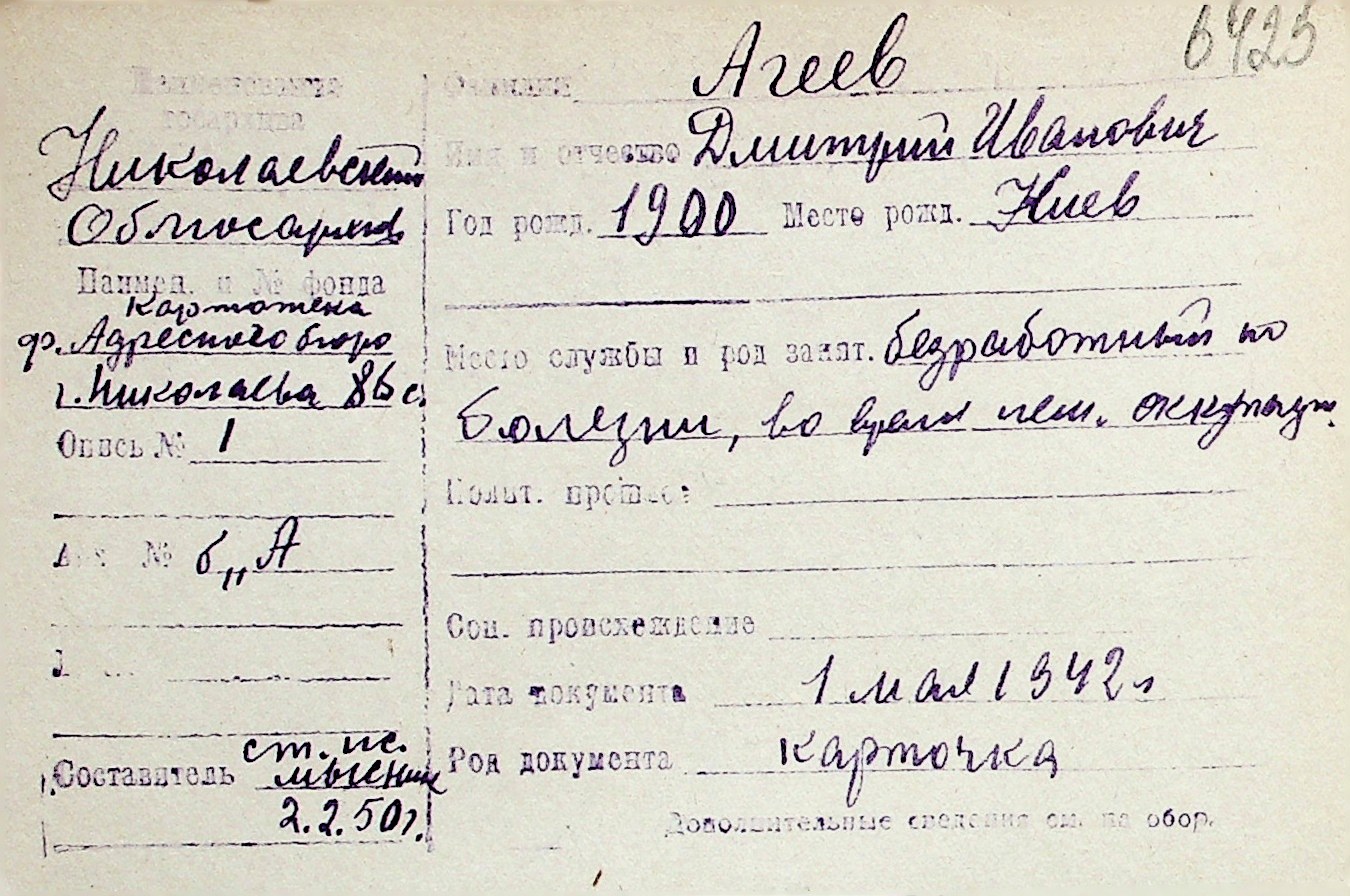 6425
Наименование
госархива
Николаевский
Облгосархив
Наимен. и № фонда
Картотека
ф. Адресного бюро
г. Николаева 86 с.
Опись № 1
№ б „А
Составитель ст. н.с.
2.2.50г.
Фамилия Агеев
Имя и отчество Дмитрий Иванович
Год рожд. 1900 Место рожд. Киев
Место службы и род занят. безработный по
болезни, во время нем. оккупации.
Полит. прошлое
Соц. происхождение
Дата документа 1 мая 1942 г
Род документа карточка
Дополнительные сведения см. на обор.